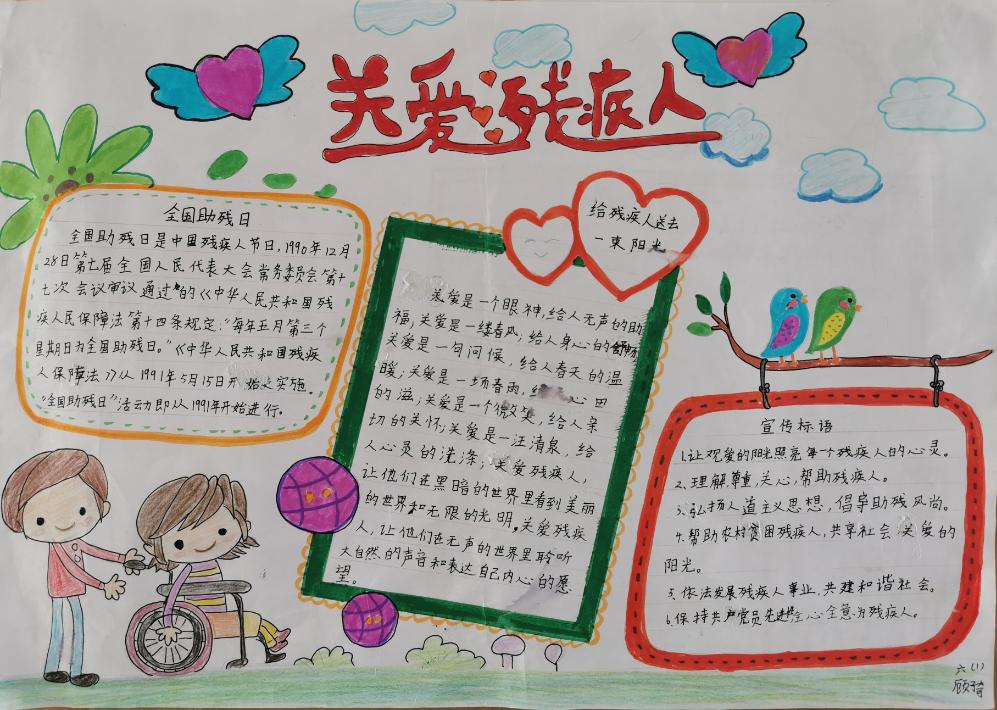 关爱残疾人
全国助残日
全国助残日是中国残疾人节日,1990年12月
28日第七届全国人民代表大会常务委员会第十
七次会议审议通过的《中华人民共和国残
疾人民保障法第十四条规定:“每年五月第三个
星期日为全国助残日。”《中华人民共和国残疾
人保障法》从1991年5月15日开始实施.
“全国助残日”活动即从1991年开始进行。
给残疾人送去
一束阳光
关爱是一个眼神,给人无声的助
福;关爱是一缕春风,给人身心的
关爱是一句问候,给人春天的温
暖;关爱是一场春雨,给 心田
的滋;关爱是一个微笑,给人亲
切的关怀;关爱是一汪清泉,给
人心灵的洗涤;关爱残疾人,
让他们在黑暗的世界里看到美丽
的世界和无限的光明。关爱残疾
人,让他们在无声的世界里聆听
大自然的声音和表达自己内心的愿
望。
宣传标语
1.让观爱的阳光照亮每个残疾人的心灵。
2.理解尊重,关心,帮助残疾人。
3.弘扬人道主义思想,倡导助残风尚。
4.帮助农村贫困残疾人,共享社会关爱的
阳光。
5.依法发展残疾人事业,共建和谐社会。
6.保持共产党员先进 全心全意为残疾人。
六(1)
顾琦